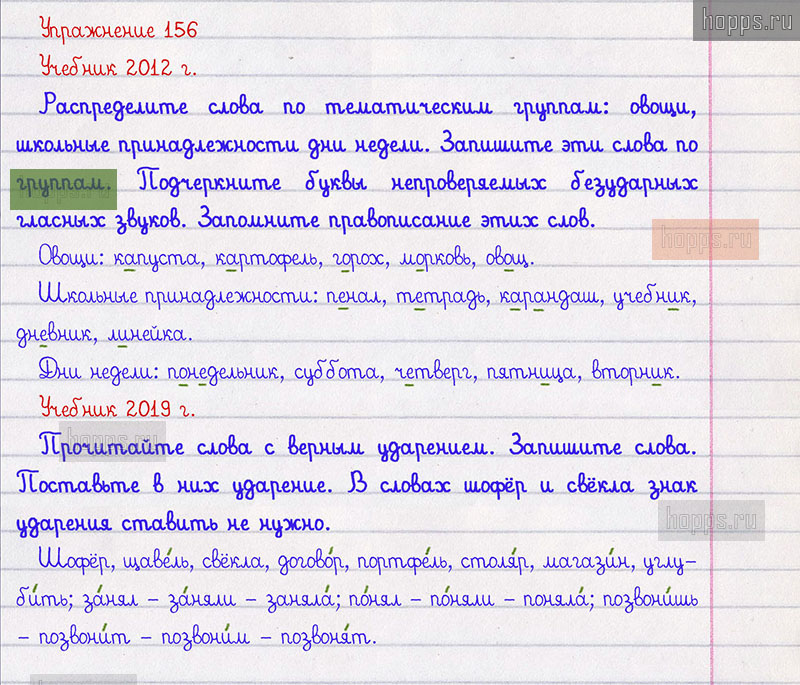 hopps.ru
Упражнение 156
Учебник 2012 г.
Распределите слова по тематическим группам: овощи,
школьные принадлежности дни недели. Запишите эти слова по
группам. Подчеркните буквы непроверяемых безударных
гласных звуков. Запомните правописание этих слов.
hopps.ru
Овощи: капуста, картофель, горох, морковь, овощ.
Школьные принадлежности: пенал, тетрадь, карандаш, учебник,
дневник, линейка.
Дни недели: понедельник, суббота, четверг, пятница, вторник.
Учебник 2019 г.
Прочитайте слова с верным ударением. Запишите слова.
Поставьте в них ударение. В словах шофёр и свёкла знак
ударения ставить не нужно.
hopps.ru
Шофёр, щаве́ль, свёкла, догово́р, портфе́ль, столя́р, магази́н, углу-
би́ть; за́нял – за́няли – заняла́; по́нял – по́няли – поняла́; позвони́шь
– позвони́т – позвони́м – позвоня́т.